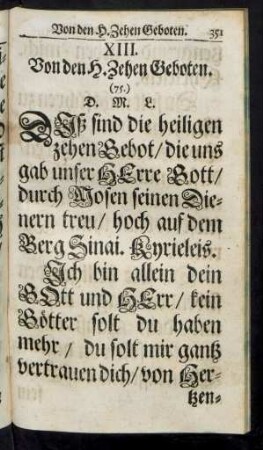 Von den H. Zehen Geboten. 351
XIII.
Von den H. Zehen Geboten.
(75.)
D. M. L.
DIß sind die heiligen
zehen Gebot/ die uns
gab unser HErre Gott/
durch Mosen seinen Die-
nern treu/ hoch auf dem
Berg Sinai. Kyrieleis.
Ich bin allein dein
GOtt und HErr/ kein
Götter solt du haben
mehr/ du solt mir gantz
vertrauen dich/ von Her-
tzen-